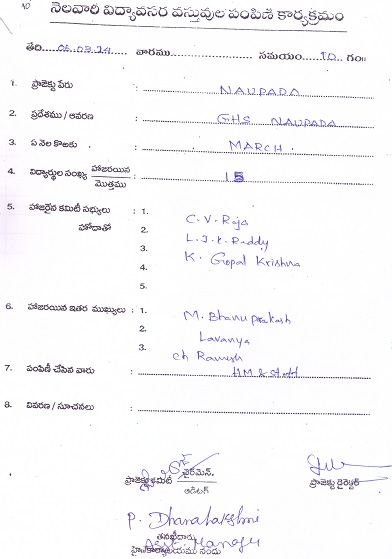 నెలవారి విద్యావసర వస్తువుల పంపిణి కార్యక్రమం
తేది: 06.03.24 వారము సమయం 10 గం॥
1. ప్రాజెక్టు పేరు : NAUPADA
2. ప్రదేశము / ఆవరణ : GHS NAUPADA
3. ఏ నెల కొఱకు : MARCH
4. విద్యార్థుల సంఖ్య హాజరయిన / మొత్తము : 15
5. హాజరైన కమిటీ సభ్యులు : 1. C.V. Raja
హోదాతో 2. L.J.K. Reddy
3. K. Gopal Krishna
4.
5.
6. హాజరయిన ఇతర ముఖ్యులు : 1. M. Bhanuprakash
2. Lavanya
3. Ch Ramesh
7. పంపిణీ చేసిన వారు : HM & Staff
8. వివరణ / సూచనలు :
ప్రాజెక్టు కమిటీ ఛైర్మెన్. ప్రాజెక్టు డైరెక్టర్
ఆడిటర్
P. Dhanalakshmi
తనిఖీదారు
Asst. Manager
హైకార్యాలయము నందు